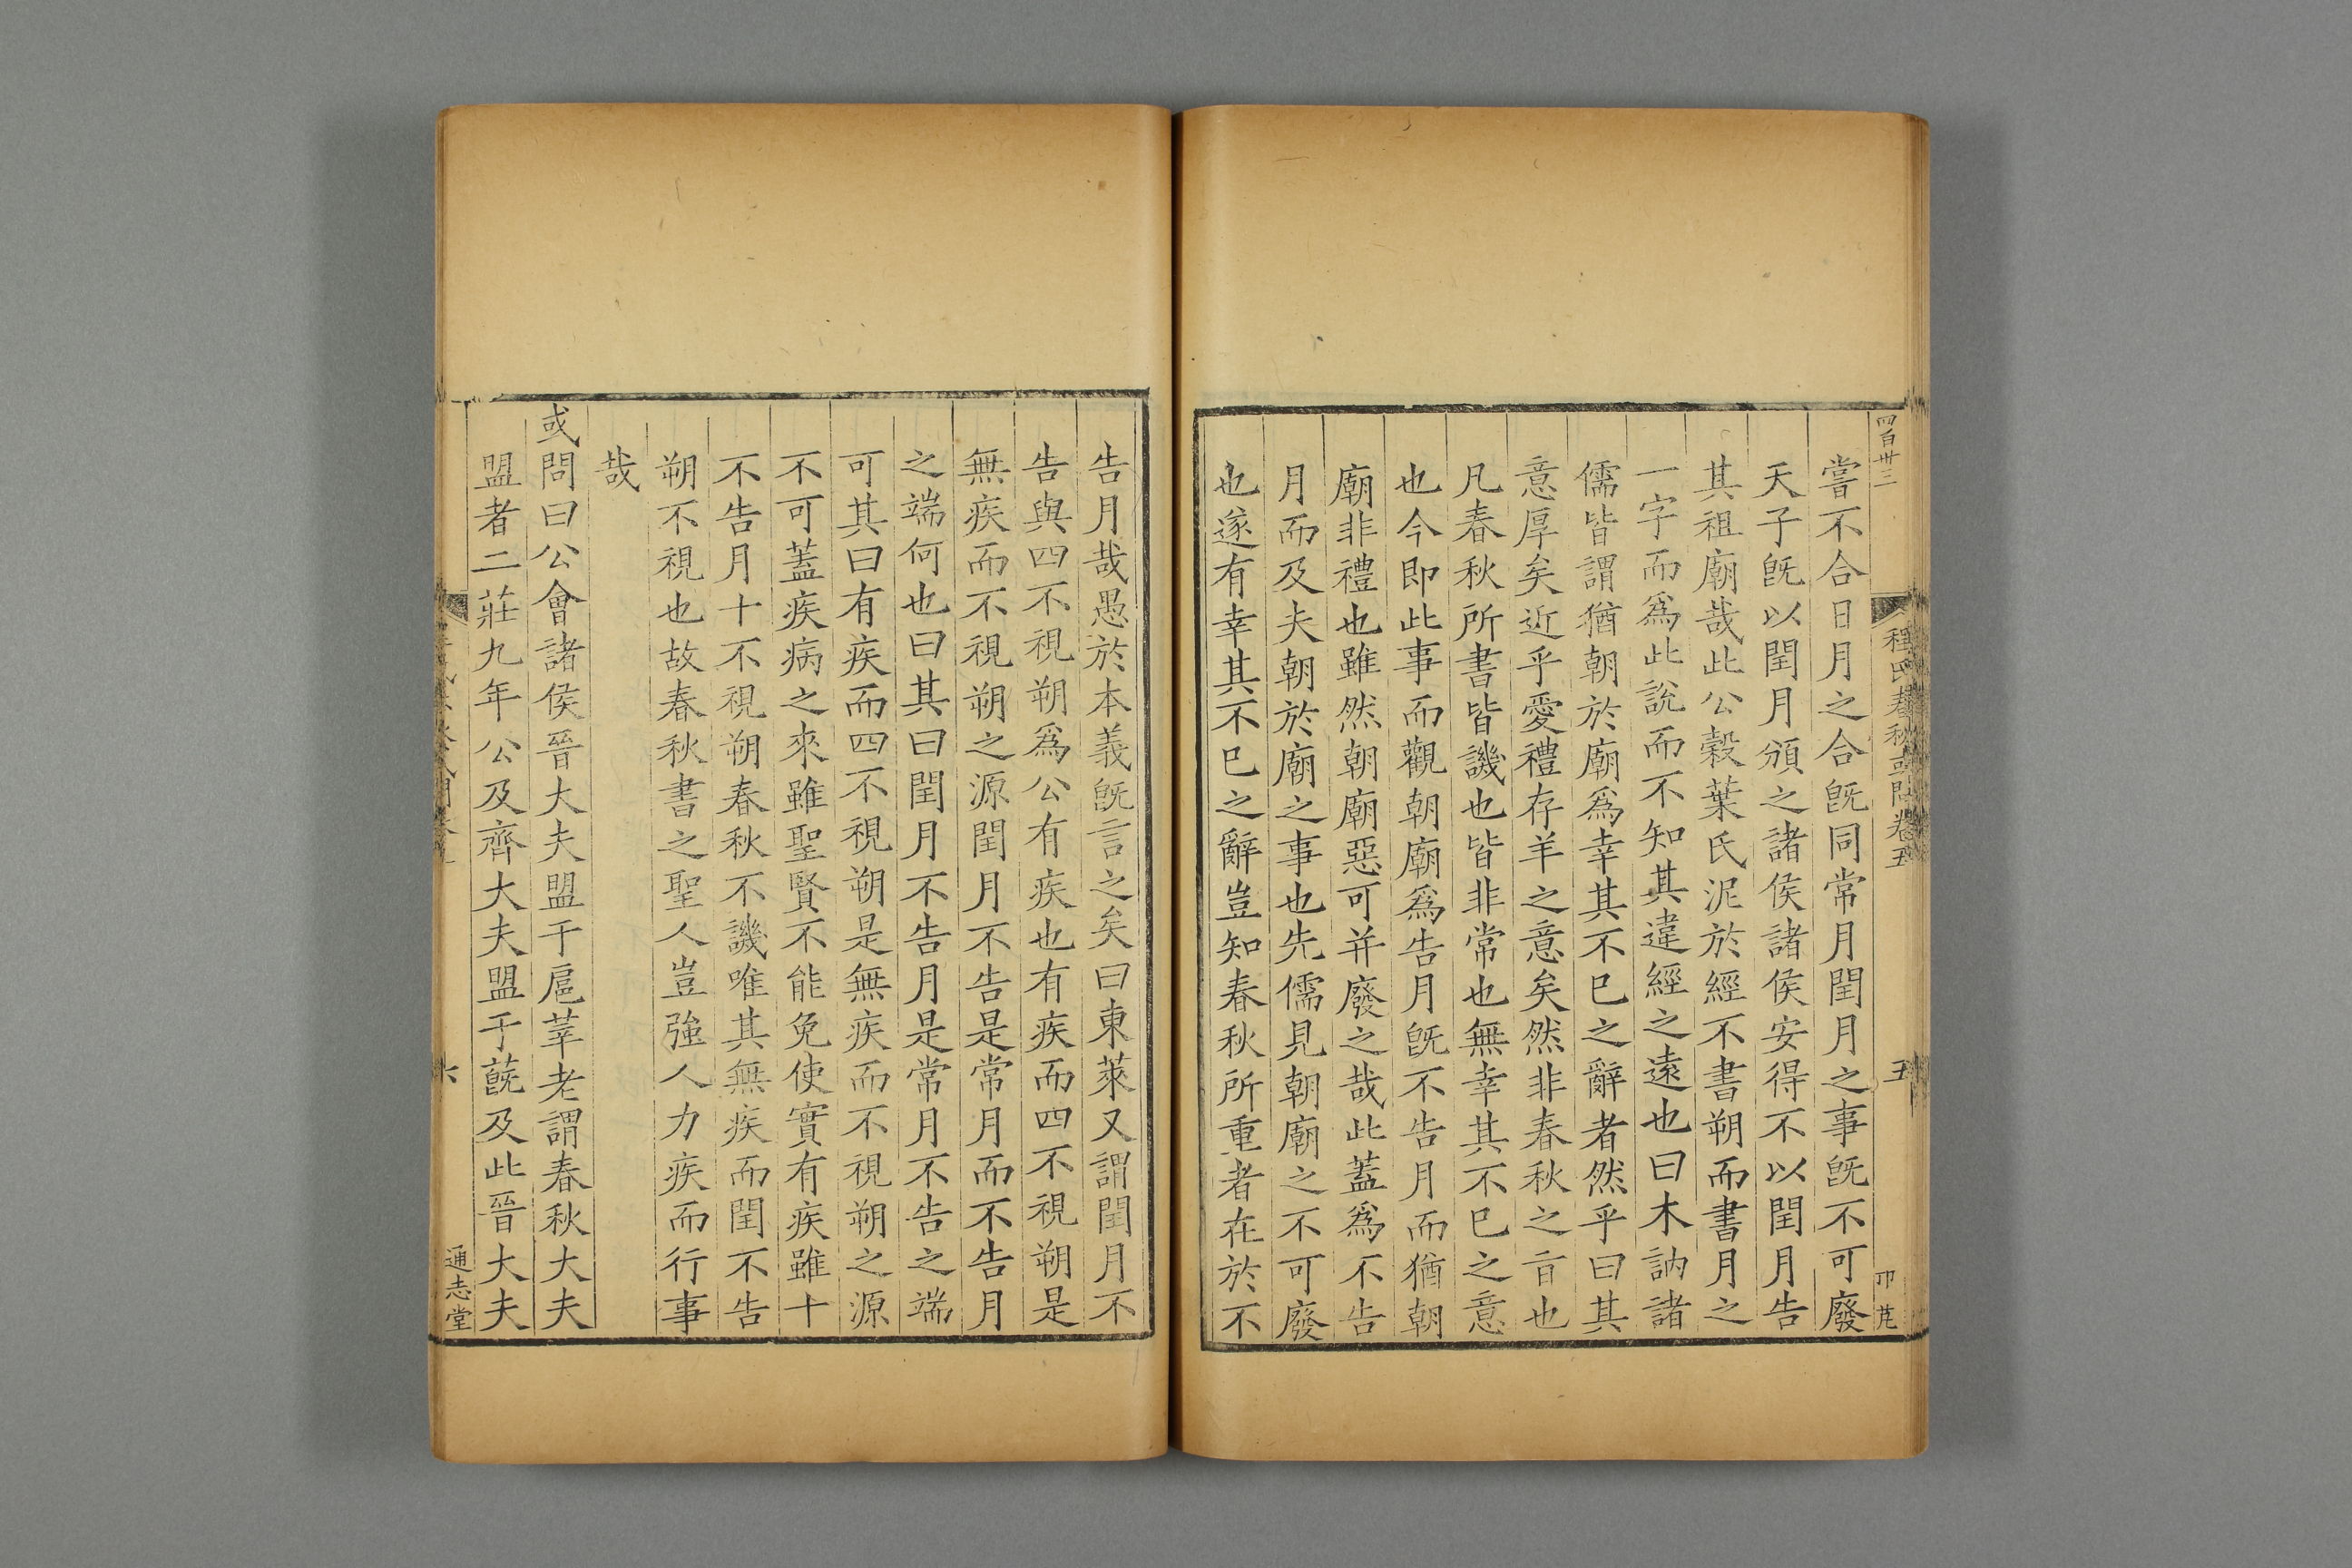 四百卅三
程氏春秋或問卷五
五
嘗不合日月之合旣同常月閏月之事旣不可廢
天子旣以閏月頒之諸侯諸侯安得不以閏月告
其祖廟哉此公穀葉氏泥於經不書朔而書月之
一字而爲此說而不知其違經之遠也曰木訥諸
儒皆謂猶朝於廟爲幸其不已之辭者然乎曰其
意厚矣近乎愛禮存羊之意矣然非春秋之㫖也
凡春秋所書皆譏也皆非常也無幸其不已之意
也今即此事而觀朝廟爲告月旣不告月而猶朝
廟非禮也雖然朝廟惡可并廢之哉此蓋爲不告
月而及夫朝於廟之事也先儒見朝廟之不可廢
也遂有幸其不已之辭豈知春秋所重者在於不
告月哉愚於本義旣言之矣曰東萊又謂閏月不
告與四不視朔爲公有疾也有疾而四不視朔是
無疾而不視朔之源閏月不告是常月而不告月
之端何也曰其曰閏月不告月是常月不告之端
可其曰有疾而四不視朔是無疾而不視朔之源
不可蓋疾病之來雖聖賢不能免使實有疾雖十
不告月十不視朔春秋不譏唯其無疾而閏不告
朔不視也故春秋書之聖人豈強人力疾而行事
哉
或問曰公會諸侯晉大夫盟于扈莘老謂春秋大夫
盟者二莊九年公及齊大夫盟于蔇及此晉大夫
六
通志堂